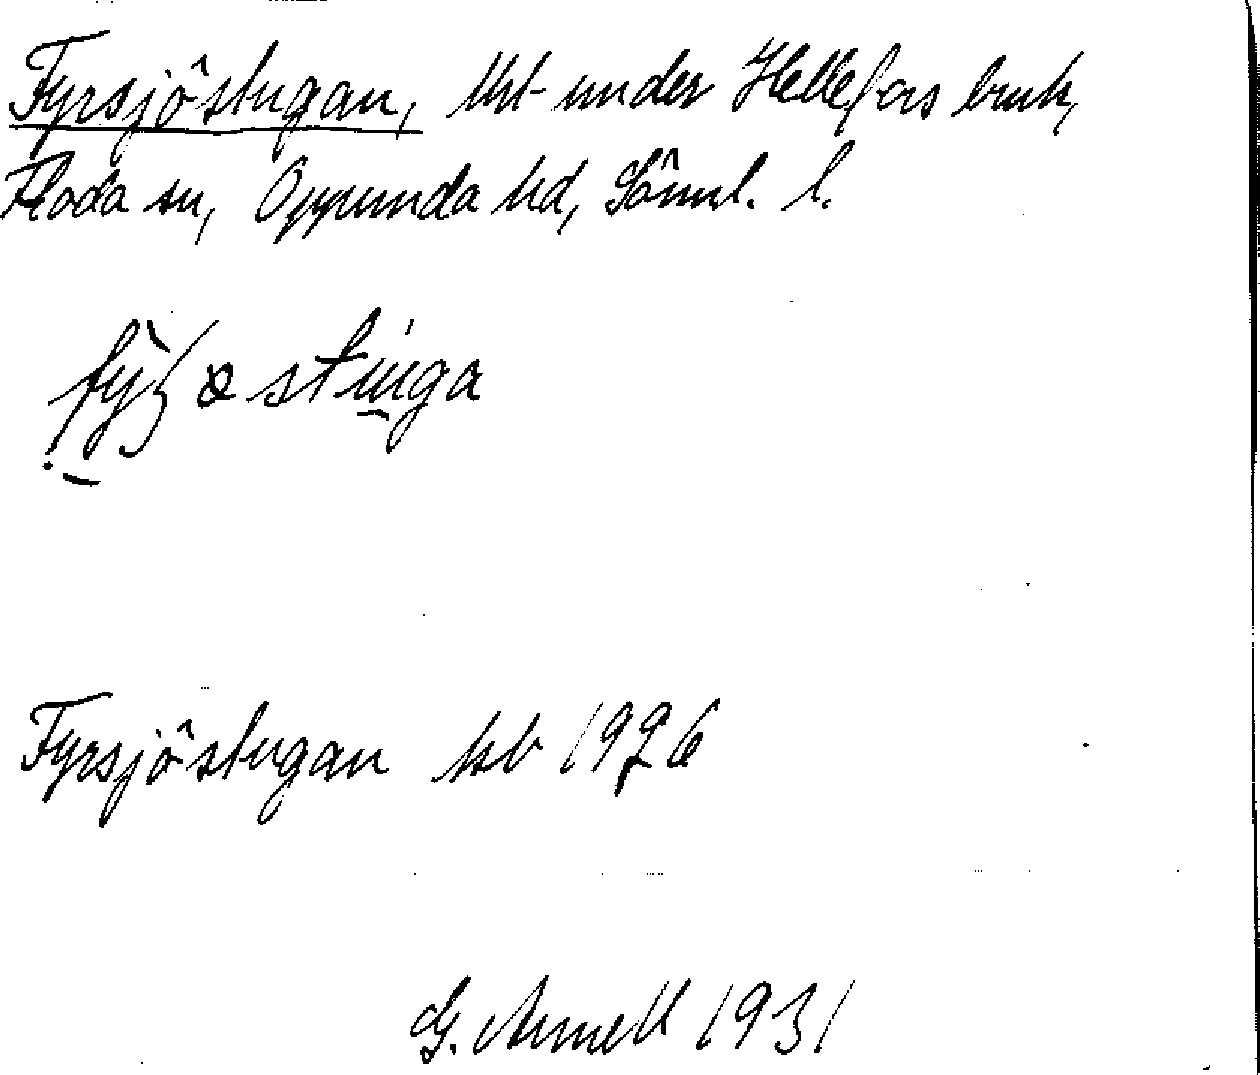 Fyrsjöstugan, lht under Hellefors bruk,
Floda sn, Oppunda hd, Söml. l.
Fyrsjöstugan kb 1926
G. Arnell 1931